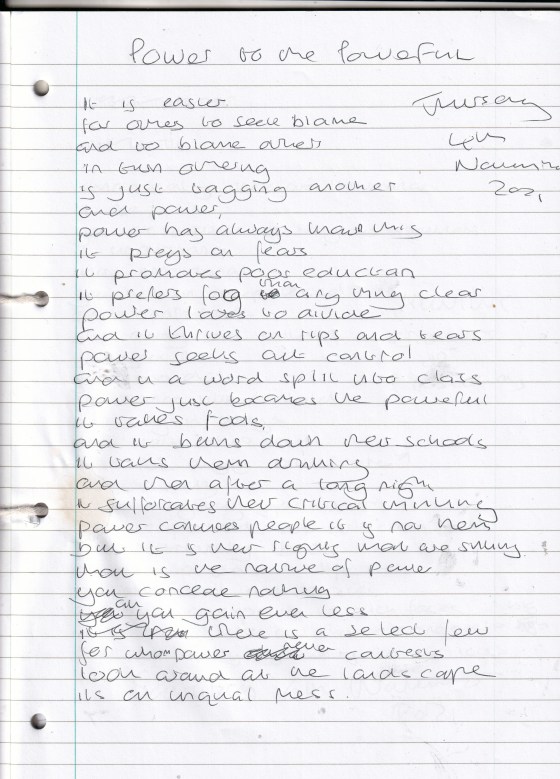 Power to the Powerful
Thursday
4th
November
2021
It is easier
for others to seek blame
and to blame others
in turn othering
is just tagging another
and power,
power has always know this
it preys on fears
it promotes poor eduction
it prefers fog than any thing clear
power loves to divide
and it thrives on rips and tears
power seeks out control
and in a word split into class
power just becomes the powerful
it takes fools,
and it burns down their schools
it takes them drinking
and then after a long night
it suffercates their critical thinking
power convinces people it is not them
but it is their rights that are
that is the nature of power
you concede nothing
and you gain even less
there is a select few
for whom power never contests
look around at the landscape
its an unqual mess.